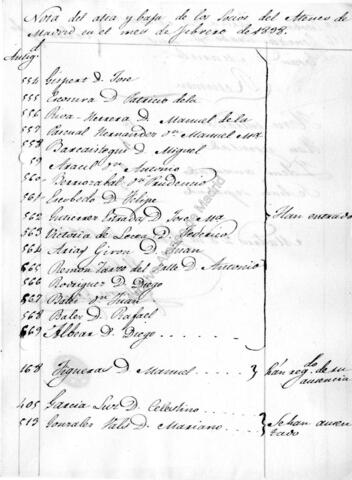 Nota del alta y baja de los Socios del Ateneo de
Madrid en el mes de febrero de 1838.
Antigd
554 Guspert D. José
555 Escosura D. Patricio de la
556 Riva-Herrera D. Manuel de la
557 Pascual Hernandez Dn Manuel Ma
558 Barcaiztegui D. Miguel
59 Antonio
560 Dn Prudencio
561 Escobedo D. Felipe
562 Gutierrez Estrada D. José Ma
563 Victoria de Lecea D. Federico
564 Arias Giron D. Juan
565 Ramon del Valle D. Antonio
566 Rodriguez D. Diego
567 Dn Juan
568 Bales D. Rafael
569 Albear D. Diego
Han entrado
168 Figueras D. Manuel
han regdo de su
ausencia
405 Garcia Luz D. Celestino
513 Gonzalez D. Mariano
Se han ausen
tado